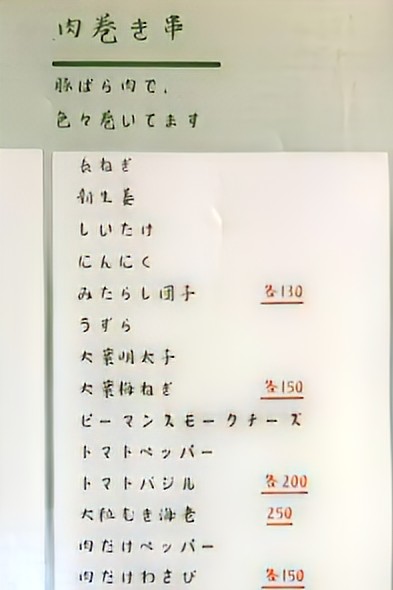 肉巻き串
豚ばら肉で、
色々巻いてます
長ねぎ
新生姜
しいたけ
にんにく
みたらし団子 各130
うずら
大葉明太子
大葉梅ねぎ 各150
ピーマンスモークチーズ
トマトペッパー
トマトバジル 各200
大粒むき海老 250
肉だけペッパー
肉だけわさび 各150